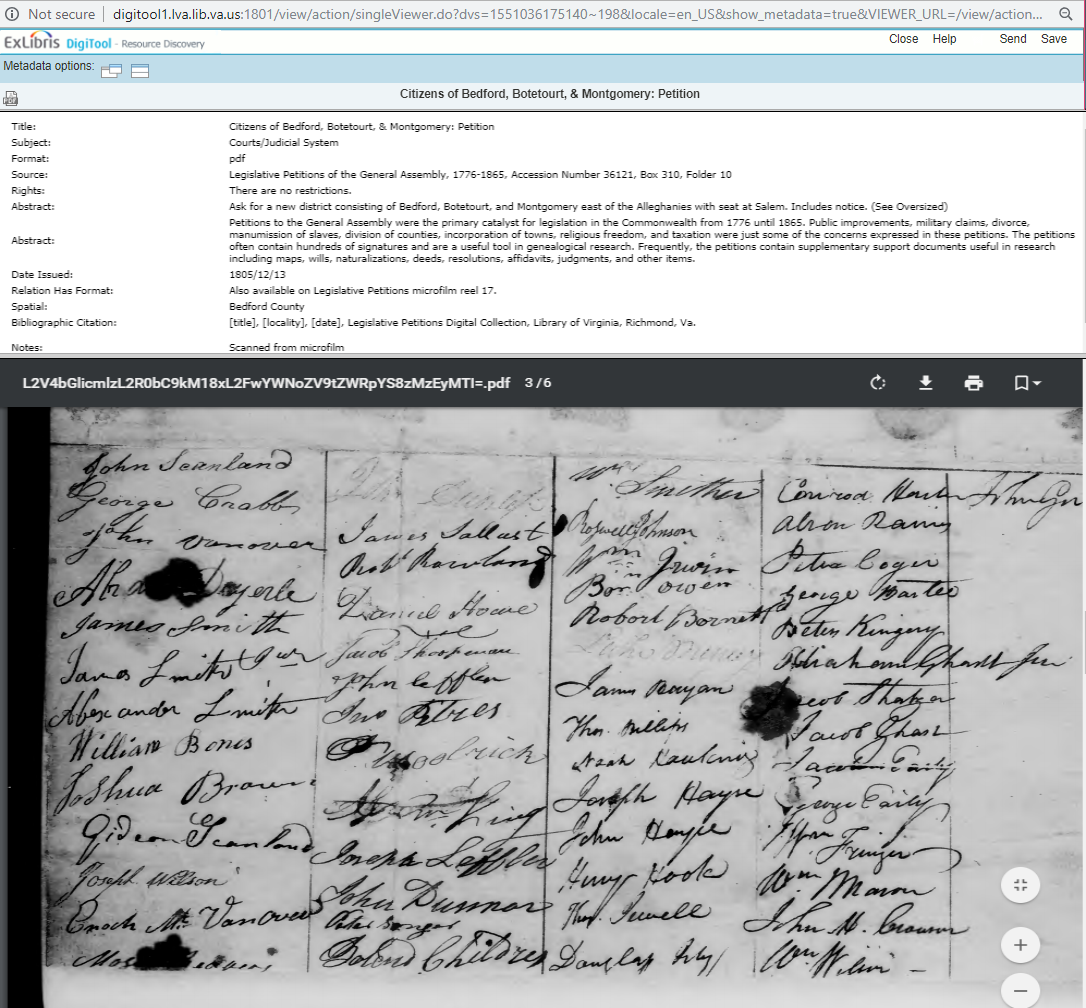 Not secure
digitool1.lva.lib.va.us:1801/view/action/singleViewer.do?dvs=1551036175140~198&locale=en_US&show_metadata=true&VIEWER_URL=/view/action...
ExLibris DigiTool - Resource Discovery
Close Help Send Save
Metadata options:
Citizens of Bedford, Botetourt, & Montgomery: Petition
Title: Citizens of Bedford, Botetourt, & Montgomery: Petition
Subject: Courts/Judicial System
Format: pdf
Source: Legislative Petitions of the General Assembly, 1776-1865, Accession Number 36121, Box 310, Folder 10
Rights: There are no restrictions.
Abstract: Ask for a new district consisting of Bedford, Botetourt, and Montgomery east of the Alleghanies with seat at Salem. Includes notice. (See Oversized)
Abstract: Petitions to the General Assembly were the primary catalyst for legislation in the Commonwealth from 1776 until 1865. Public improvements, military claims, divorce,
manumission of slaves, division of counties, incorporation of towns, religious freedom, and taxation were just some of the concerns expressed in these petitions. The petitions
often contain hundreds of signatures and are a useful tool in genealogical research. Frequently, the petitions contain supplementary support documents useful in research
including maps, wills, naturalizations, deeds, resolutions, affidavits, judgments, and other items.
Date Issued: 1805/12/13
Relation Has Format: Also available on Legislative Petitions microfilm reel 17.
Spatial: Bedford County
Bibliographic Citation: [title], [locality], [date], Legislative Petitions Digital Collection, Library of Virginia, Richmond, Va.
Notes: Scanned from microfilm
L2V4bGlicmlzL2R0bC9kM18xL2FwYWNoZV9tZWRpYS8zMzEyMTI=.pdf 3/6
John Scanland
George Crabb
John Vanover
Deyerle
James Smith
James Smith Junr
Alexander Smith
William Bones
Joshua Brown
Gideon Scanland
Joseph Willson
Enoch Vanover
James Sallust
Robt Rowland
Daniel Howe
Jacob
John Leffler
Jno
King
Joseph Leffler
John Dunnar
Peter Songer
Boland Childres
Wm Smither
Roswell Johnson
Wm Irwin
Owen
Robert Bornett
James Reagan
Thos. Millirs
Noah
Joseph Hayse
John Hayse
Henry Hook
Thos. Jewell
Douglas
Conrod
Abron
Peter Coger
George
Peter Kingery
Abraham Ghast Jun
Jacob Ghast
George Early
Wm Mason
John M.
Wm
John